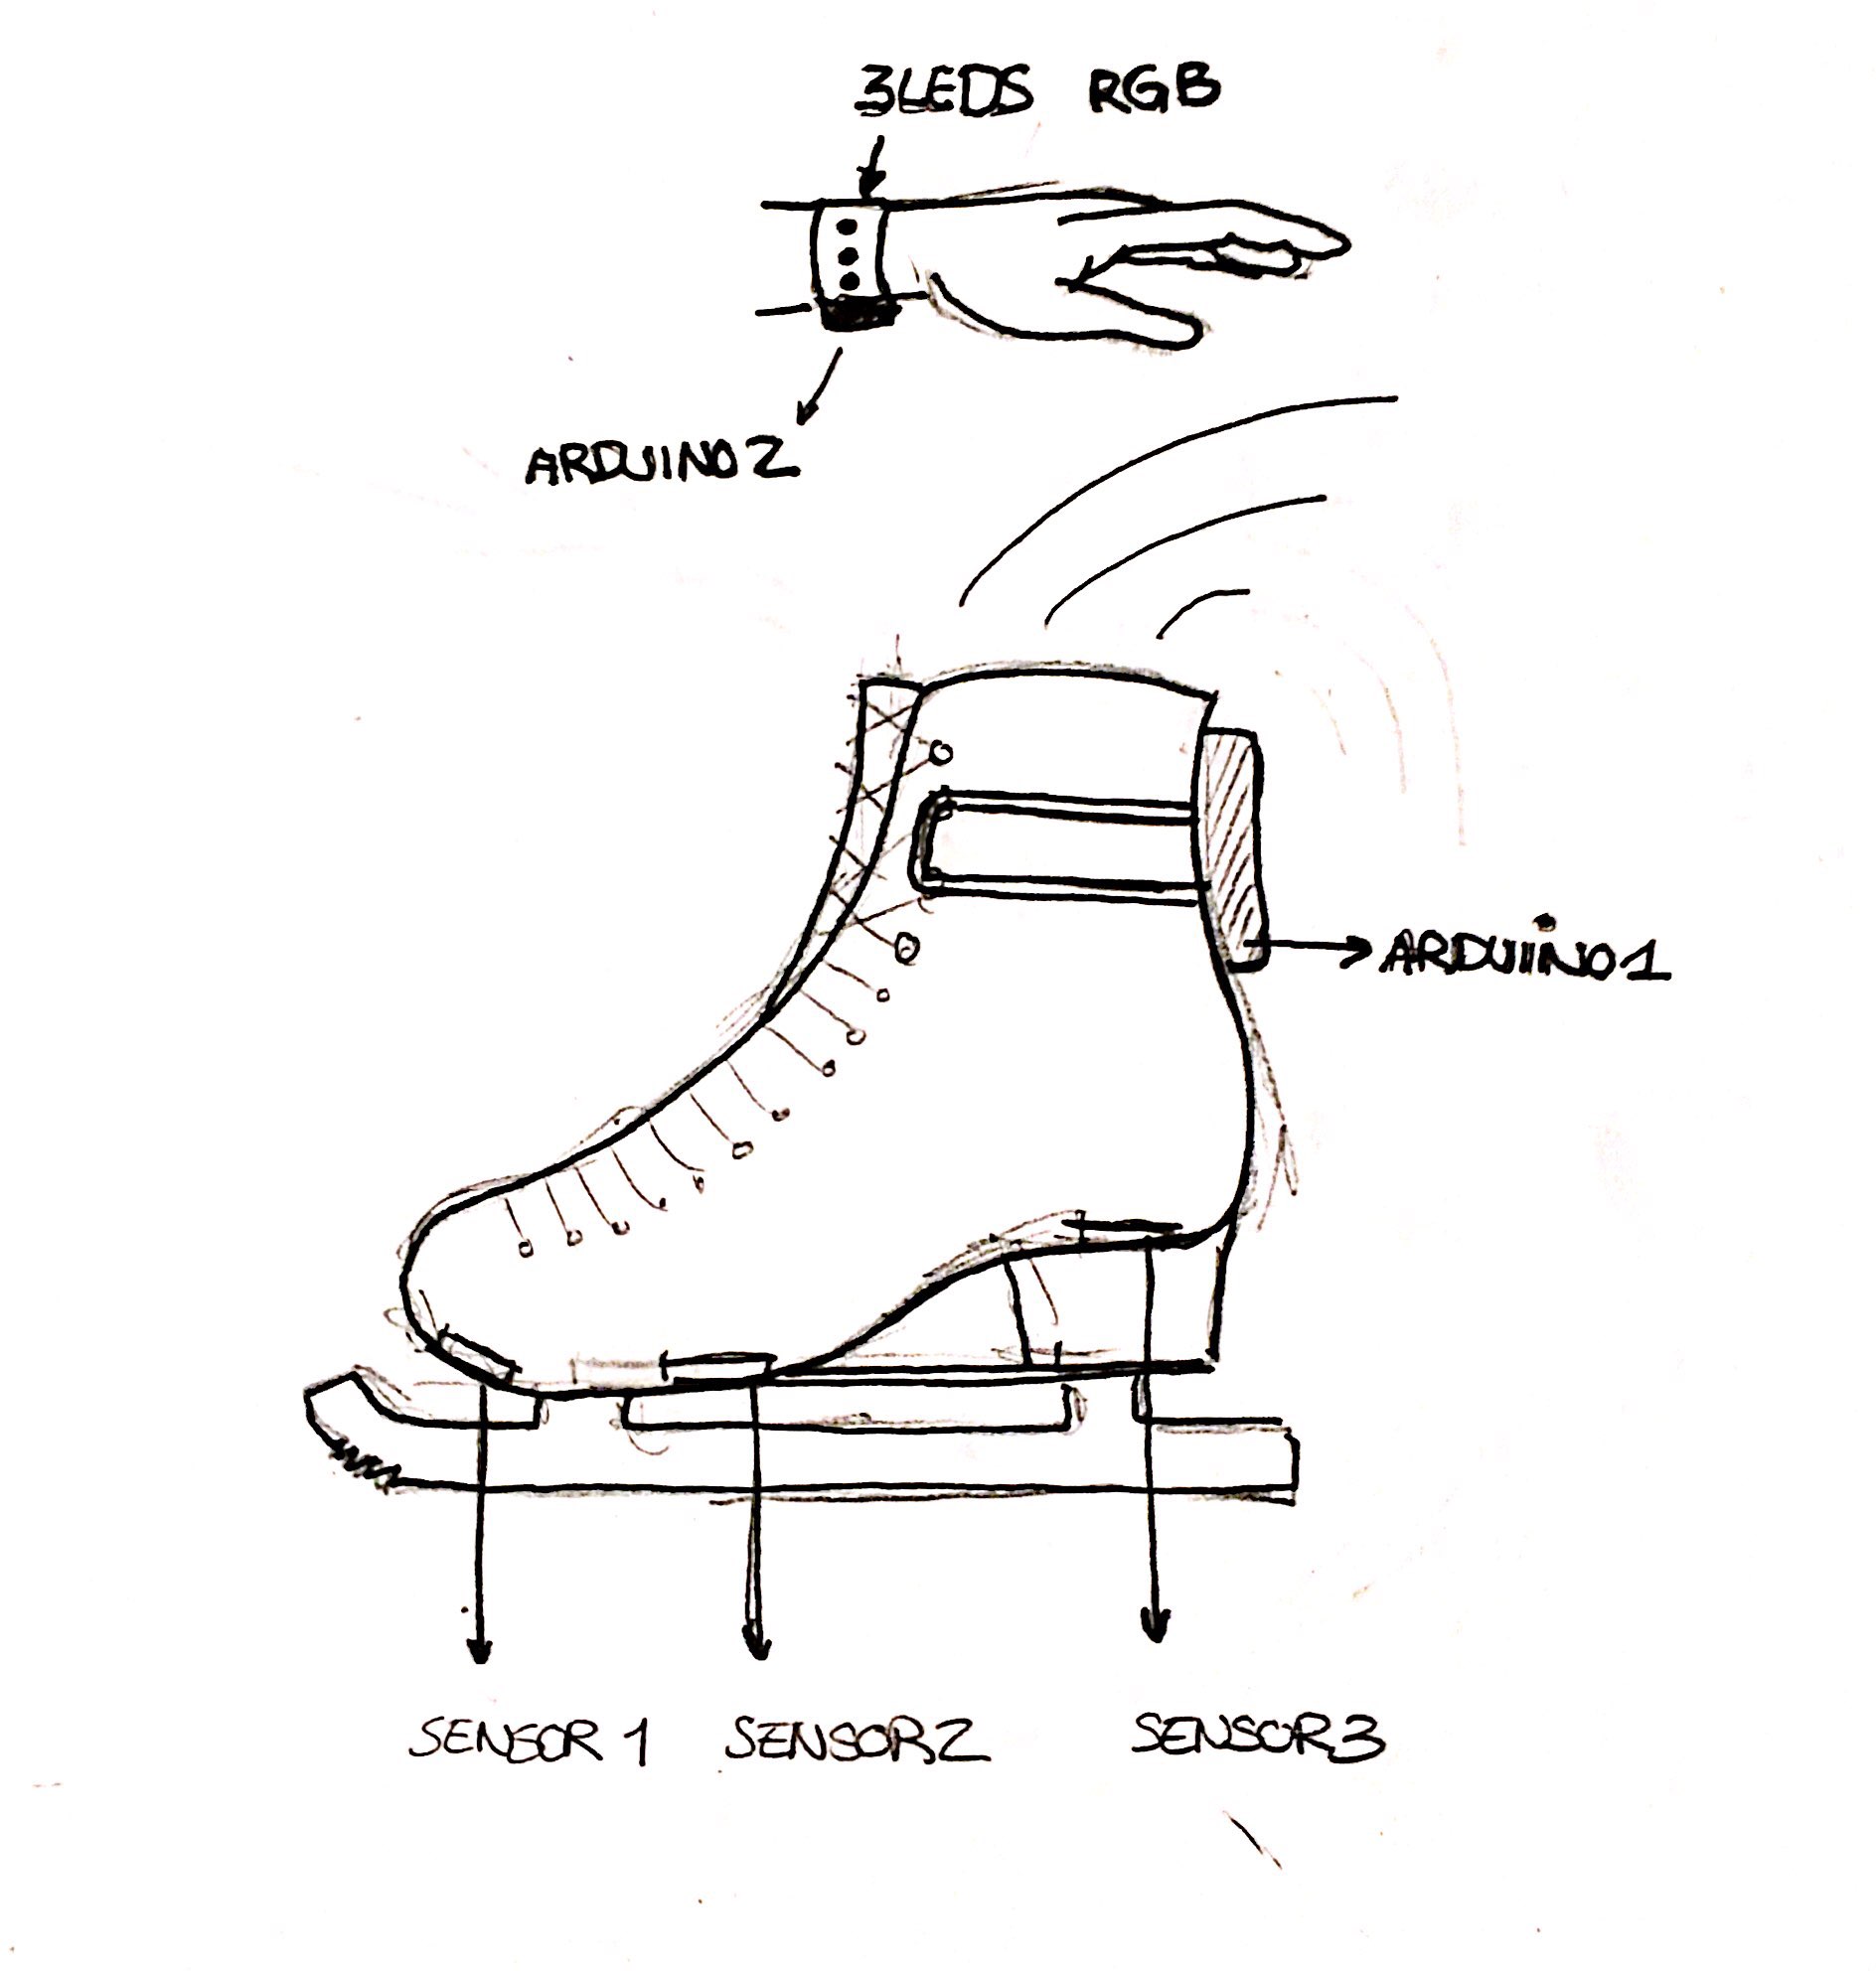 3LEDS RGB
ARDUINO2
ARDUINO1
SENSOR 1
SENSOR2
SENSOR3